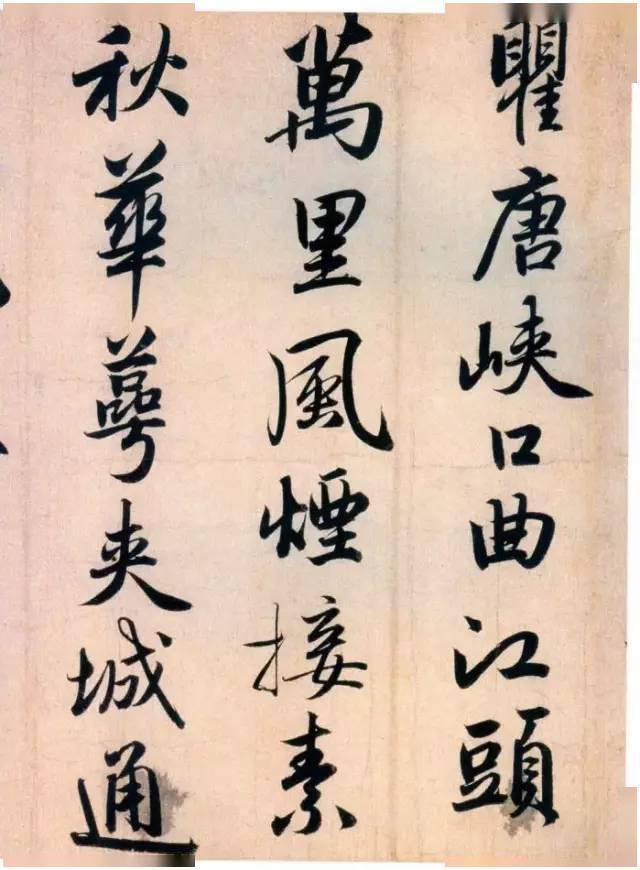 瞿唐峡口曲江頭
萬里風煙接素
秋華萼夾城通